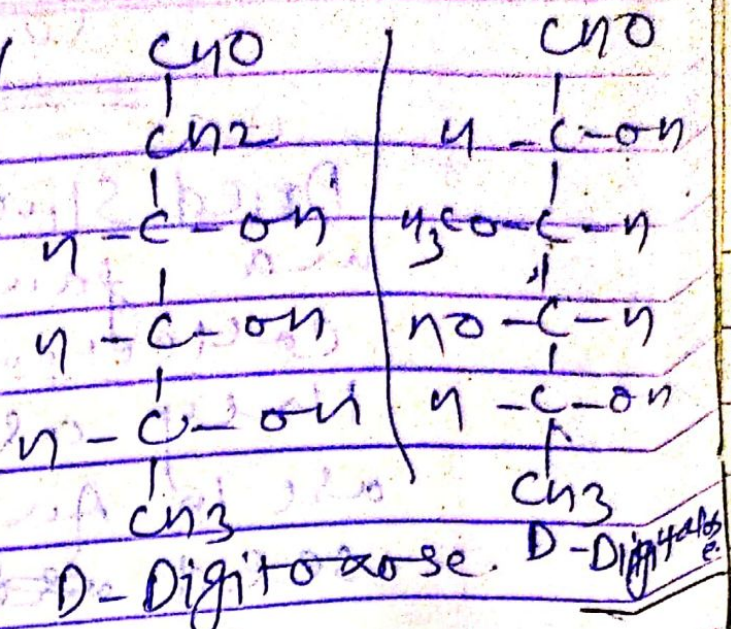 CHO
CH2
H-C-OH
H-C-OH
H-C-OH
CH3
D-Digitoxose.
CHO
H-C-OH
H3CO-C-H
HO-C-H
H-C-OH
CH3
D-Digitalose.